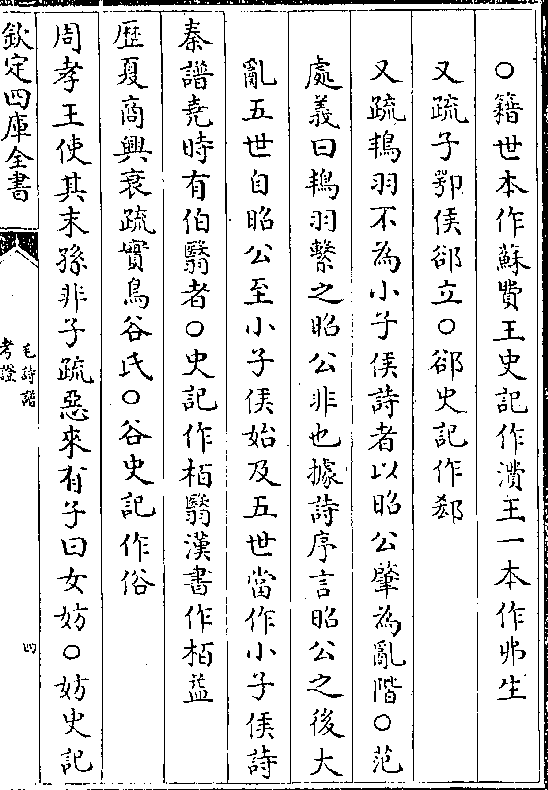 ○籍世本作蘇費王史記作濆王一本作弗生
又疏子鄂侯郤立○郤史記作郄
又疏鴇羽不為小子侯詩者以昭公肇為亂階○范
處義曰鴇羽繫之昭公非也據詩序言昭公之後大
亂五世自昭公至小子侯始及五世當作小子侯詩
秦譜堯時有伯翳者○史記作栢翳漢書作栢益
歴夏商興衰疏實鳥谷氏○谷史記作俗
周孝王使其末孫非子疏惡來有子曰女妨○妨史記
欽定四庫全書
毛詩譜
考證
四